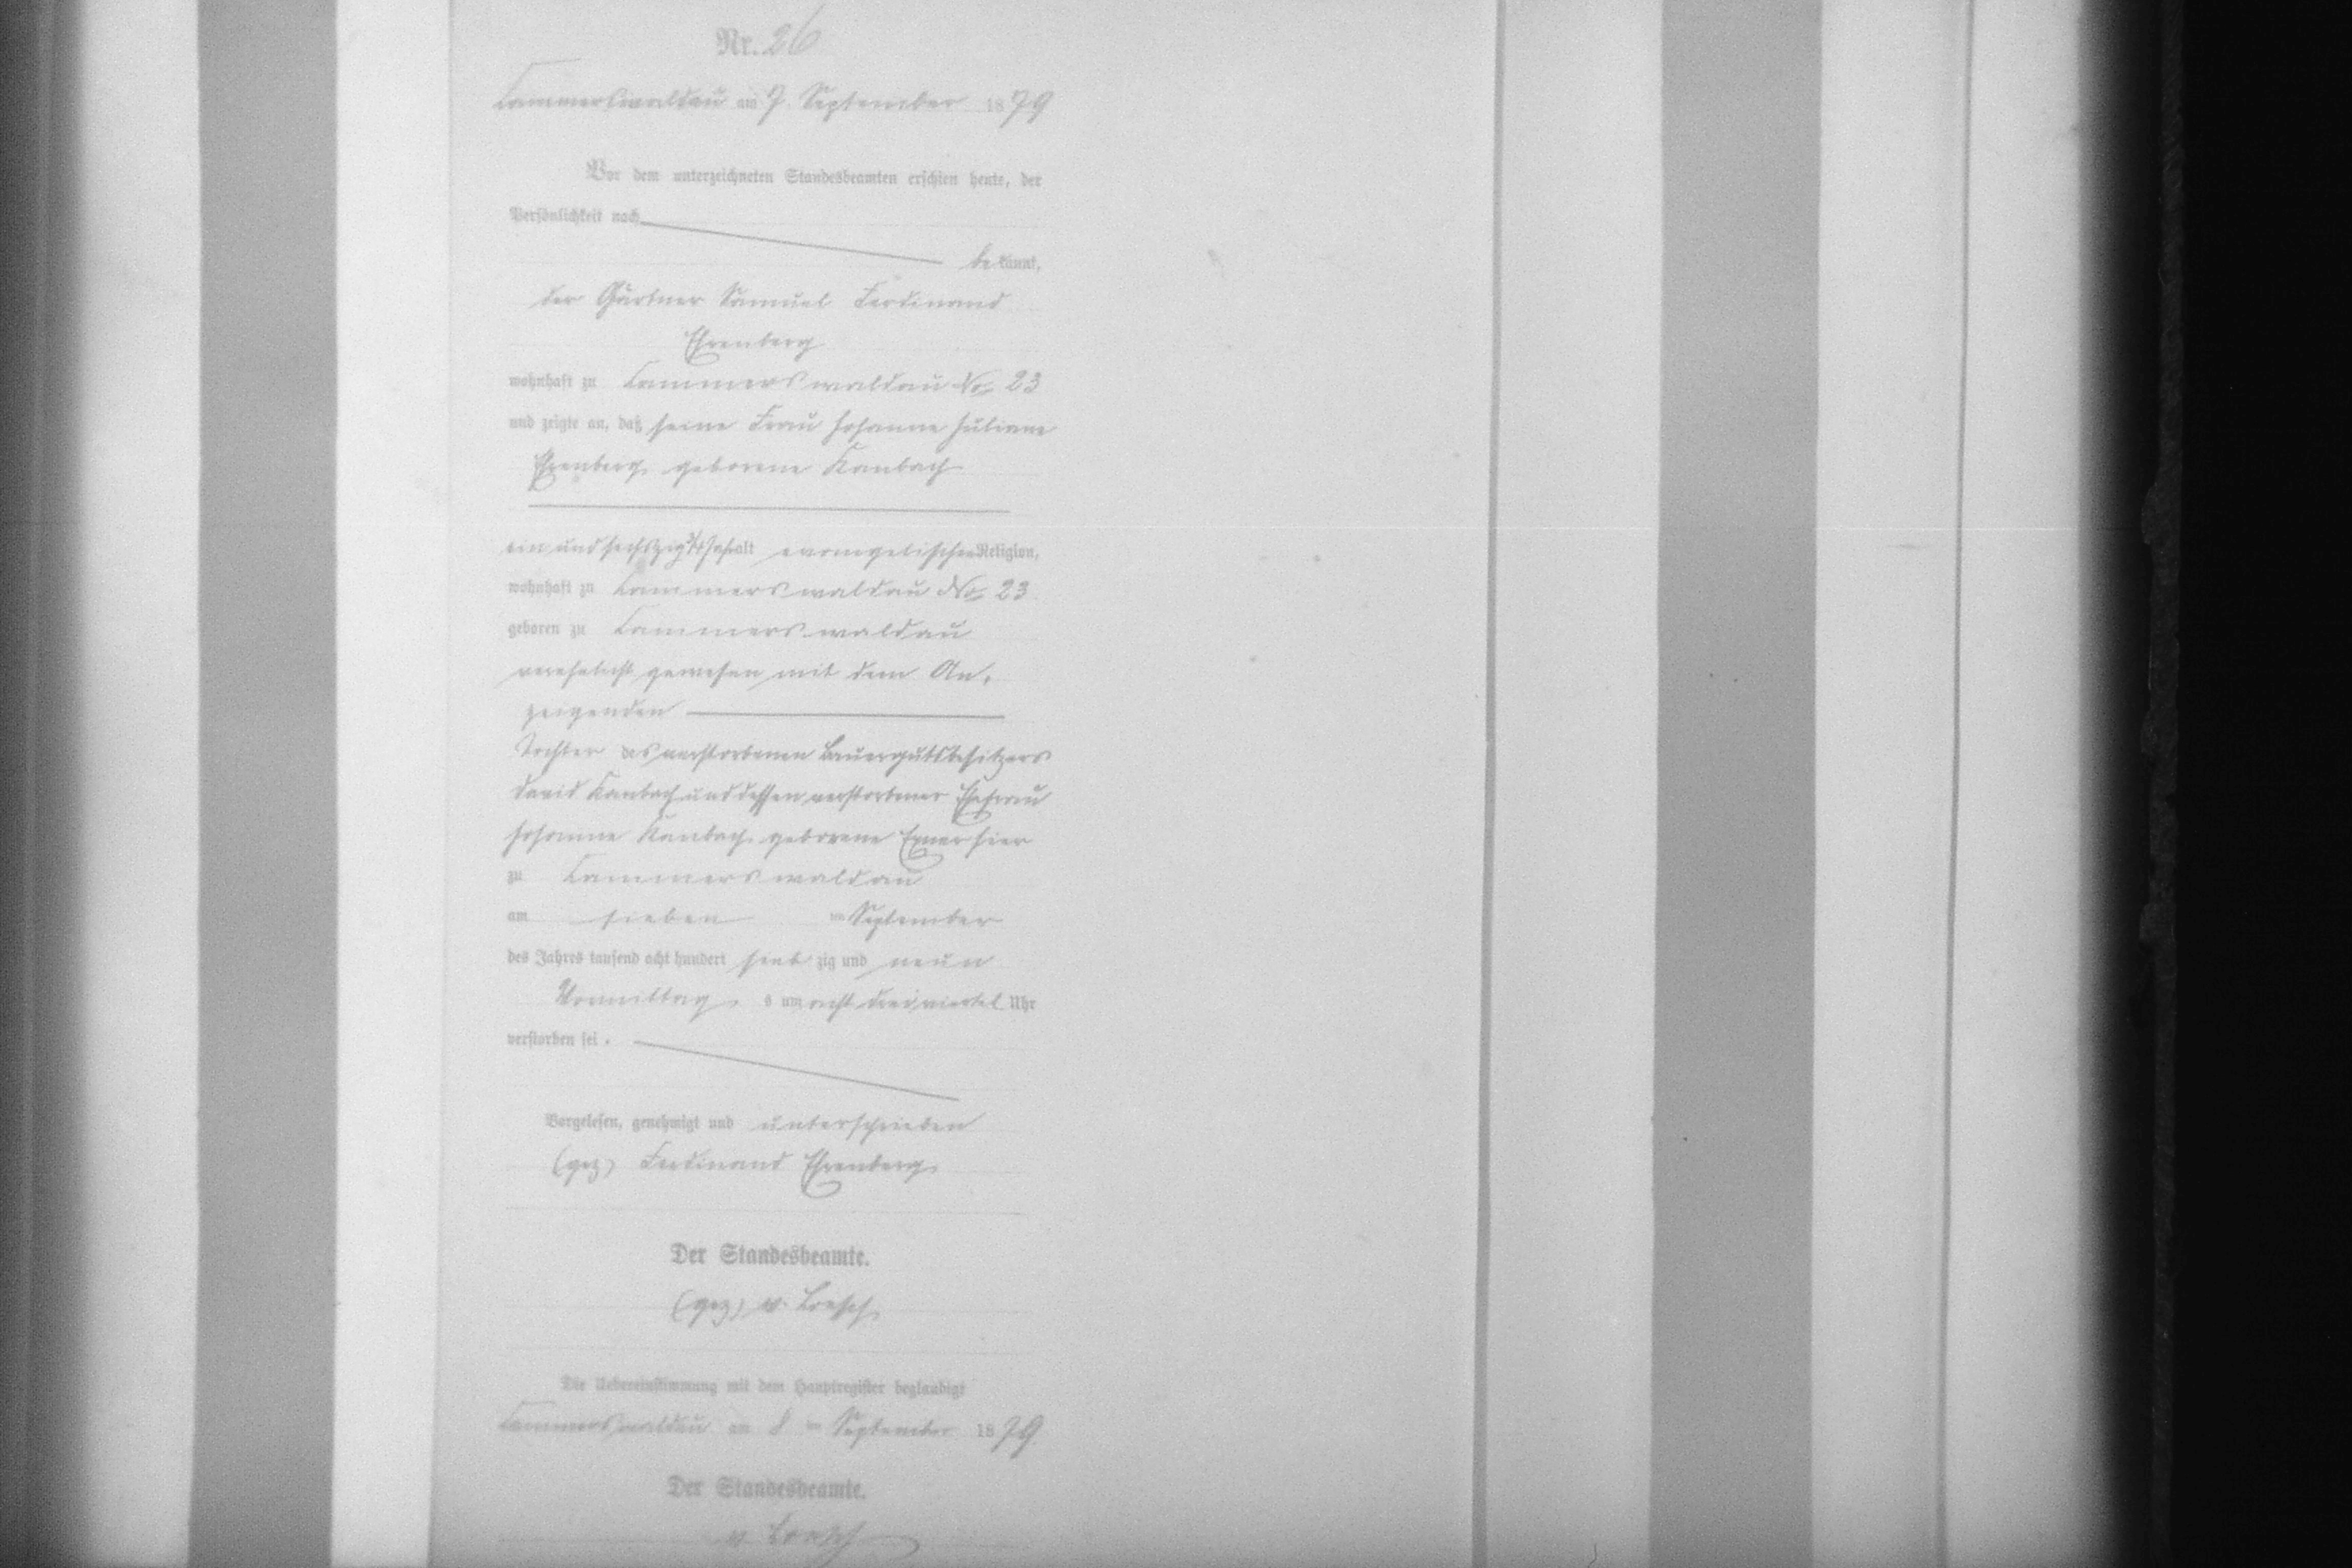 Nr. 26
Kammerswaldau am 7. September 1879
Vor dem unterzeichneten Standesbeamten erschien heute, der
Persönlichkeit nach
be kannt,
der Gärtner Samuel Ferdinand
Ehrenberg
wohnhaft zu Kammerswaldau No 23
und zeigte an, daß seine Frau Johanne Juliane
Ehrenberg geborene Kambach
ein und sechszig Jahr alt evangelischer Religion,
wohnhaft zu Kammerswaldau No 23
geboren zu Kammerswaldau
verehelicht gewesen mit dem An-
zeigenden
Tochter des verstorbenen Bauergutsbesitzers
David Kambach und dessen verstorbener Ehefrau
Johanne Kambach geborene Exner hier
zu Kammerswaldau
am sieben ten September
des Jahres tausend acht hundert sieb zig und neun
Vormittag s um acht dreiviertel Uhr
verstorben sei.
Vorgelesen, genehmigt und unterschrieben
(gez) Ferdinand Ehrenberg
Der Standesbeamte.
(gez) v. Loesch
Die Uebereinstimmung mit dem Hauptregister beglaubigt
Kammerswaldau am 8 ten September 1879
Der Standesbeamte.
v. Loesch